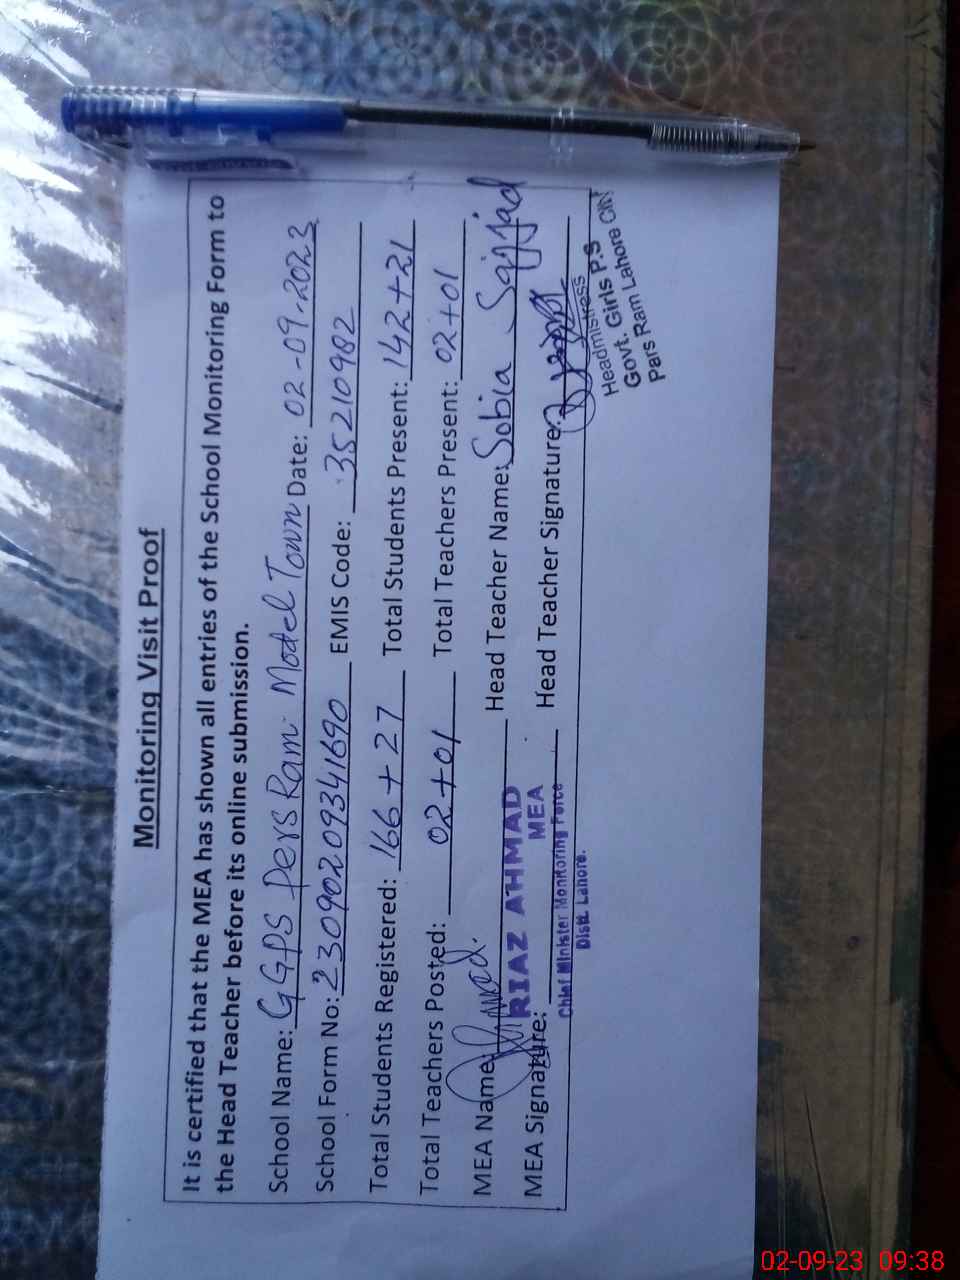 Monitoring Visit Proof
It is certified that the MEA has shown all entries of the School Monitoring Form to
the Head Teacher before its online submission.
School Name: GGPS Pers Ram Model Town Date: 02-09-2023
School Form No: 23090209341690 EMIS Code: 35210982
Total Students Registered: 166+27 Total Students Present: 142+21
Total Teachers Posted: 02+01 Total Teachers Present: 02+01
MEA Name: Head Teacher Name: Sobia Sajjad
RIAZ AHMAD
MEA Signature: MEA Head Teacher Signature:
Chief Minister Monitoring Force
Distt. Lahore.
Headmistress
Govt. Girls P.S
Pars Ram Lahore City
02-09-23 09:38